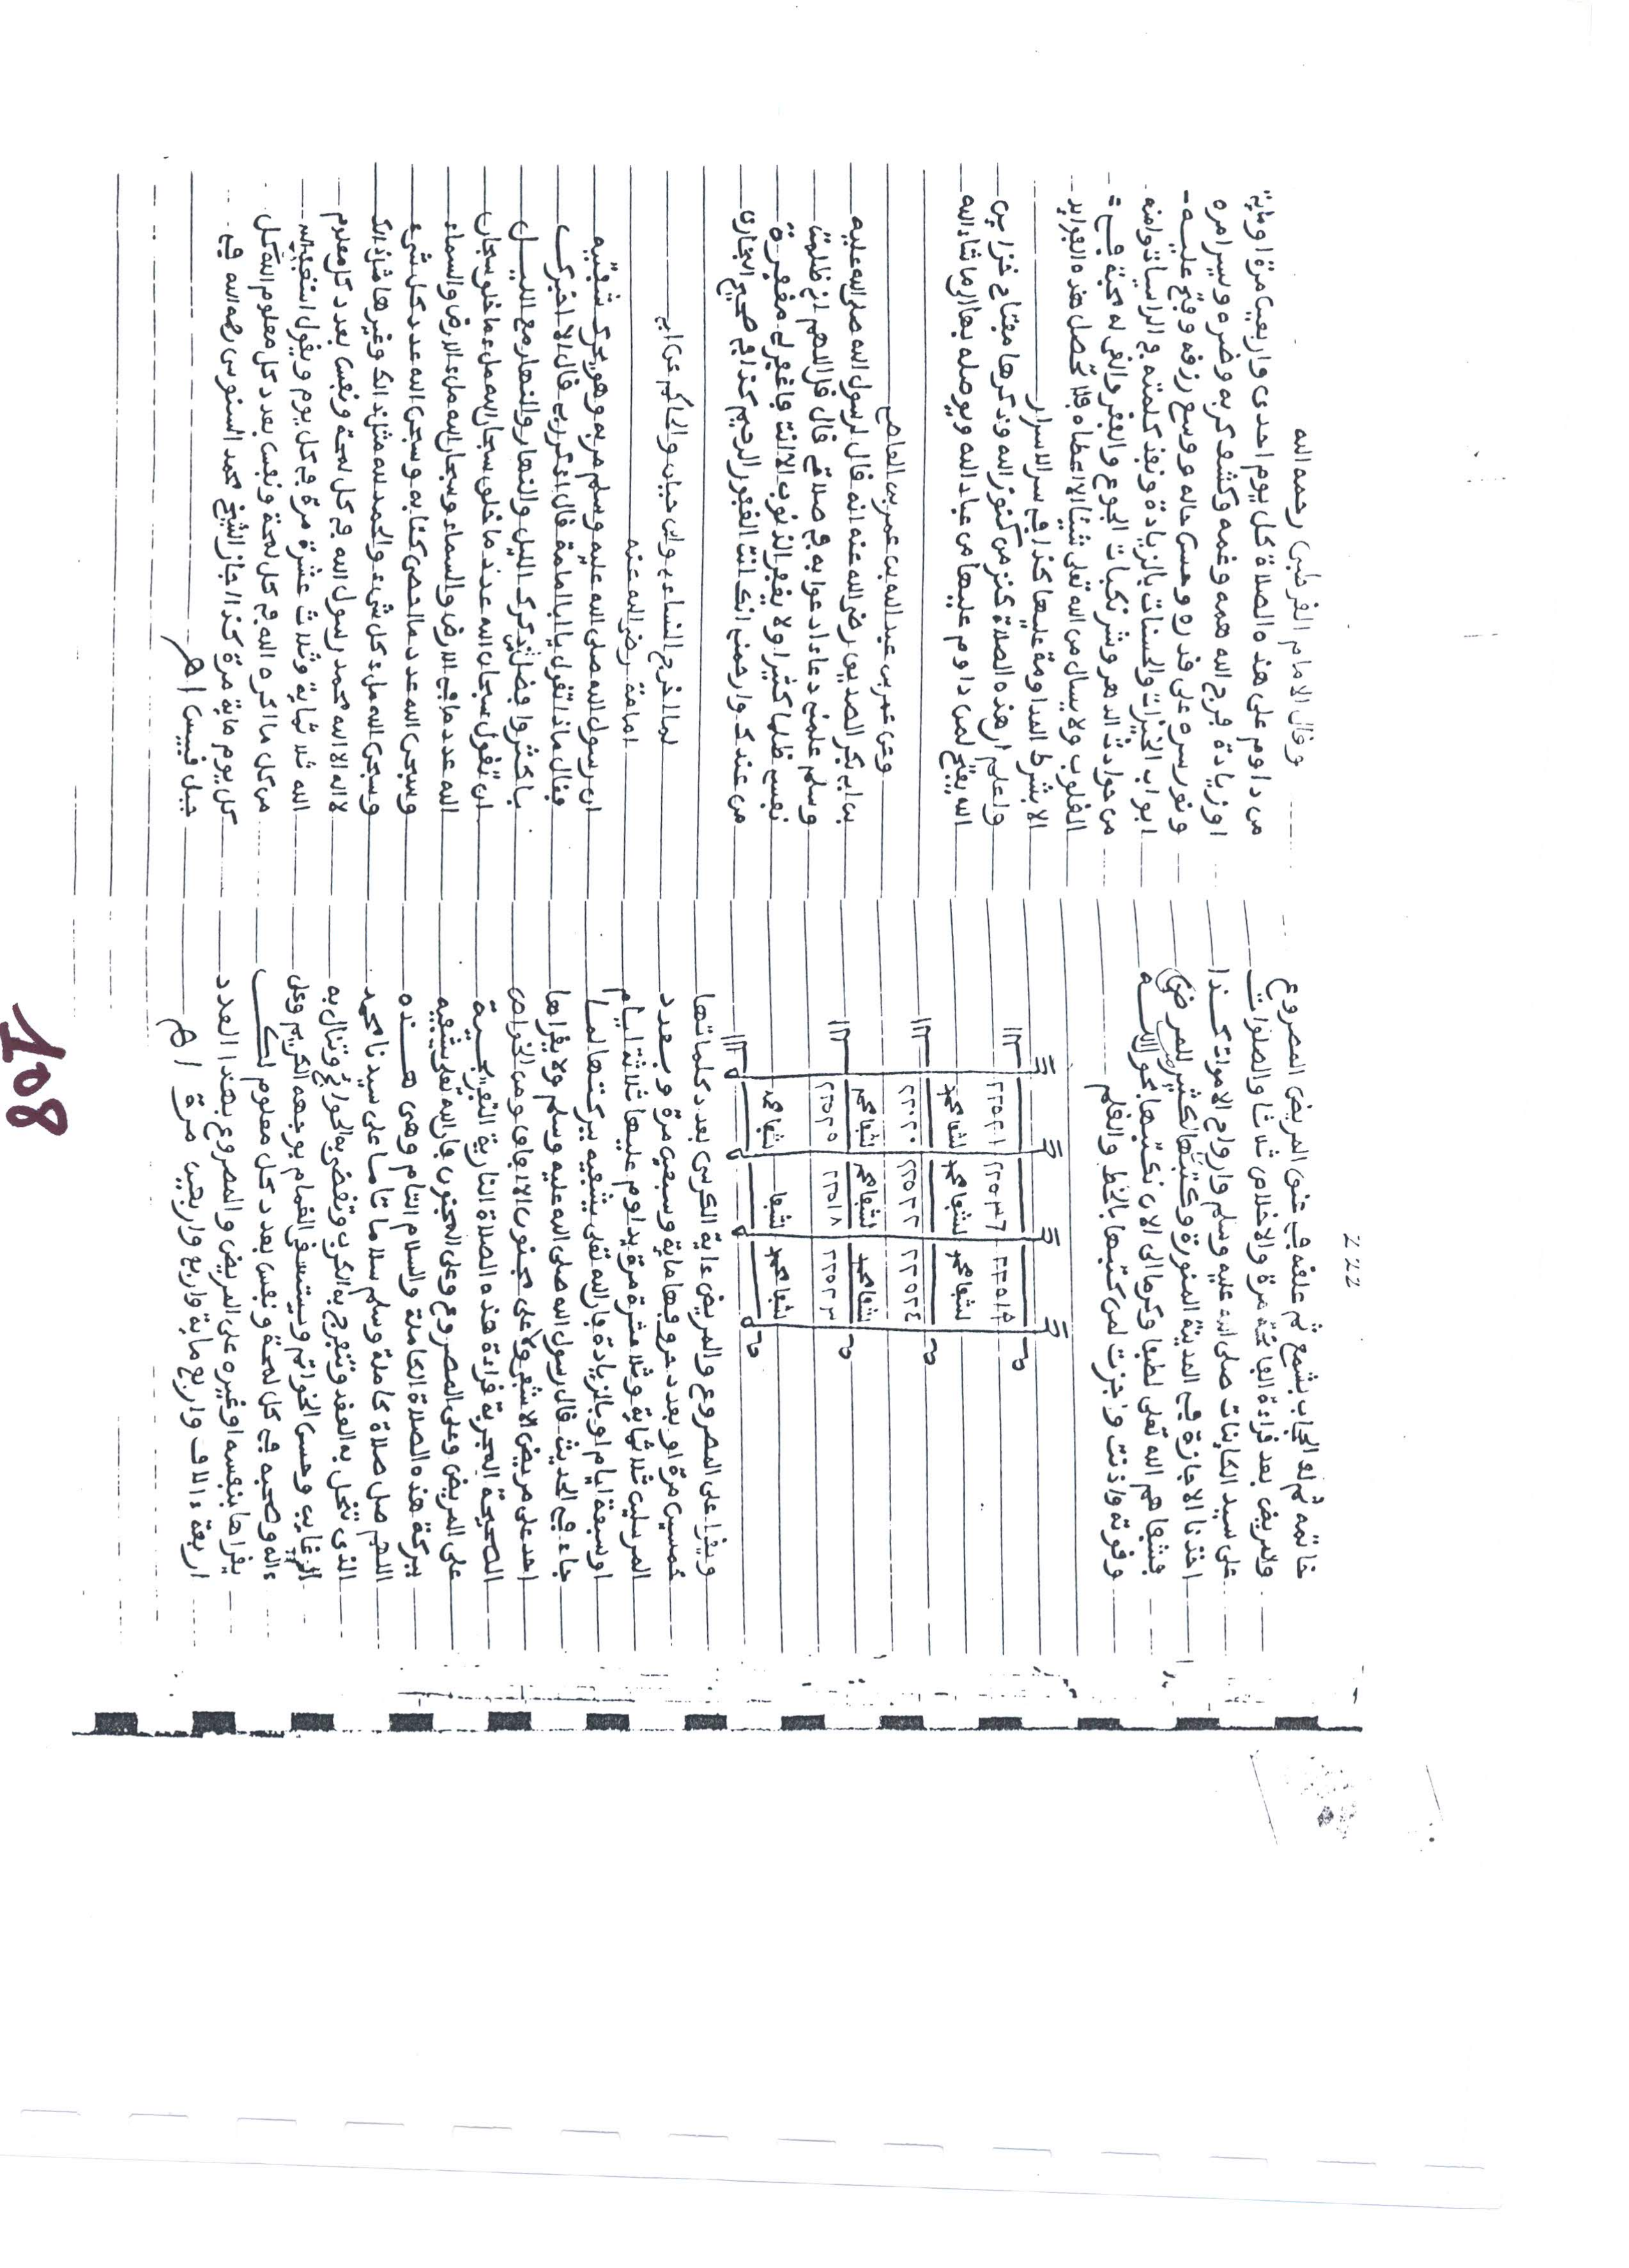 222
خاتمه ثم لو الحجاب بشمع ثم علقه في عنق المريض المصروع
والمريض بعد قراءة الفاتحة مرة والاخلاص ثلاثا والصلوات
على سيد الكاينات صلى الله عليه وسلم وارواح الاموات كذا
اخذنا الاجازة في المدينة المنورة وكتبتها لكثير للمرضى
فشفاهم الله تعلى لطفا وكرما الى الان نكتبها بحول الله
وقوته واذنت واجزت لمن كتبها بالخط والقلم
٢٢٥١٩ ٢٢٥٣٦ ٢٢٥٢١
لشفا محمد لشفا محمد لشفا محمد
٢٢٥٢٤ ٢٢٥٢٢ ٢٢٠٢٠
لشفا محمد لشفا محمد لشفا محمد
٢٢٥٢٣ ٢٢٥١٨ ٢٢٥٢٥
لشفا محمد لشفا لشفا محمد
ويقرا على المصروع والمريض ءاية الكرسى بعدد كلماتها
خمسين مرة او بعدد حروفها ماية وسبعين مرة وبعدد
المرسلين ثلاثماية وثلاثة عشرة مرة يداوم عليها ثلاثة ايام
او سبعة ايام او بالزيادة فان الله تعلى يشفيه ببركتها لما
جاء في الحديث قال رسول الله صلى الله عليه وسلم ولا يقراها
احد على مريض الا شفي ولا على مجنون الا افاق ومن الخواص
الصحيحة المجربة قراءة هذه الصلاة النارية التفريجية
على المريض وعلى المصروع وعلى المجنون فان الله تعلى يشفيه
ببركة هذه الصلاة الكاملة والسلام التام وهى هذه
اللهم صل صلاة كاملة وسلم سلاما تاما على سيدنا محمد
الذى تنحل به العقد وتنفرج به الكرب وتقضى به الحوائج وتنال به
الرغايب وحسن الخواتم ويستسقى الغمام بوجهه الكريم وعلى
ءاله وصحبه في كل لمحة ونفس بعدد كل معلوم لك
يقراها بنفسه او غيره على المريض والمصروع بهذا العدد
اربعة ءالاف واربع ماية واربع واربعين مرة اهـ
وقال الامام القرطبى رحمه الله
من داوم على هذه الصلاة كل يوم احدى واربعين مرة او ماية
او زيادة فرج الله همه وغمه وكشف كربه وضره ويسر امره
ونور سره على قدره وحسن حاله ووسع رزقه وفتح عليه
ابواب الخيرات والحسنات بالزيادة ونفذ كلمته في الرياسات وامنه
من حوادث الدهر وشر نكبات الجوع والفقر والقى له محبة في
القلوب ولا يسال من الله تعلى شيئا الا اعطاه فلا تحصل هذه الفوايد
الا بشرط المداومة عليها كذا في سر الاسرار
واعلم ان هذه الصلاة كنز من كنوز الله وذكرها مفتاح خزاين
الله يفتح لمن داوم عليها من عباد الله ويوصله بها الى ما شاء الله
وعن عمر بن عبد الله بن عمر بن العاص
بن ابى بكر الصديق رضى الله عنه انه قال لرسول الله صلى الله عليه
وسلم علمنى دعاء ادعوا به في صلاتى قال قل اللهم انى ظلمت
نفسى ظلما كثيرا ولا يغفر الذنوب الا انت فاغفر لى مغفرة
من عندك وارحمنى انك انت الغفور الرحيم كذا في صحيح البخارى
لما اخرج النساءى وابن حبان والحاكم عن ابى
امامة رضى الله عنه
ان رسول الله صلى الله عليه وسلم مر به وهو يحرك شفتيه
فقال ماذا تقول يا ابا امامة قال اذكر ربى قال الا اخبرك
باكثر وافضل ذكرك الليل والنهار والنهار مع الليل
ان تقول سبحان الله عدد ما خلق سبحان الله ملء ما خلق سبحان
الله عدد ما في الارض والسماء وسبحان الله ملء الارض والسماء
وسبحن الله عدد ما احصى كتابه وسبحن الله عدد كل شىء
وسبحن الله ملء كل شىء والحمد لله مثل ذالك وغيرها مثل ذالك
لا اله الا الله محمد رسول الله في كل لمحة ونفس بعدد كل معلوم
الله ثلاثماية وثلاث عشرة مرة في كل يوم ويقول استغفر الله
من كل ما اكره الله في كل لمحة ونفس بعدد كل معلوم الله كل
كل يوم ماية مرة كذا اجاز الشيخ محمد السنوسى رحمه الله في
جبل قبيس اهـ
108